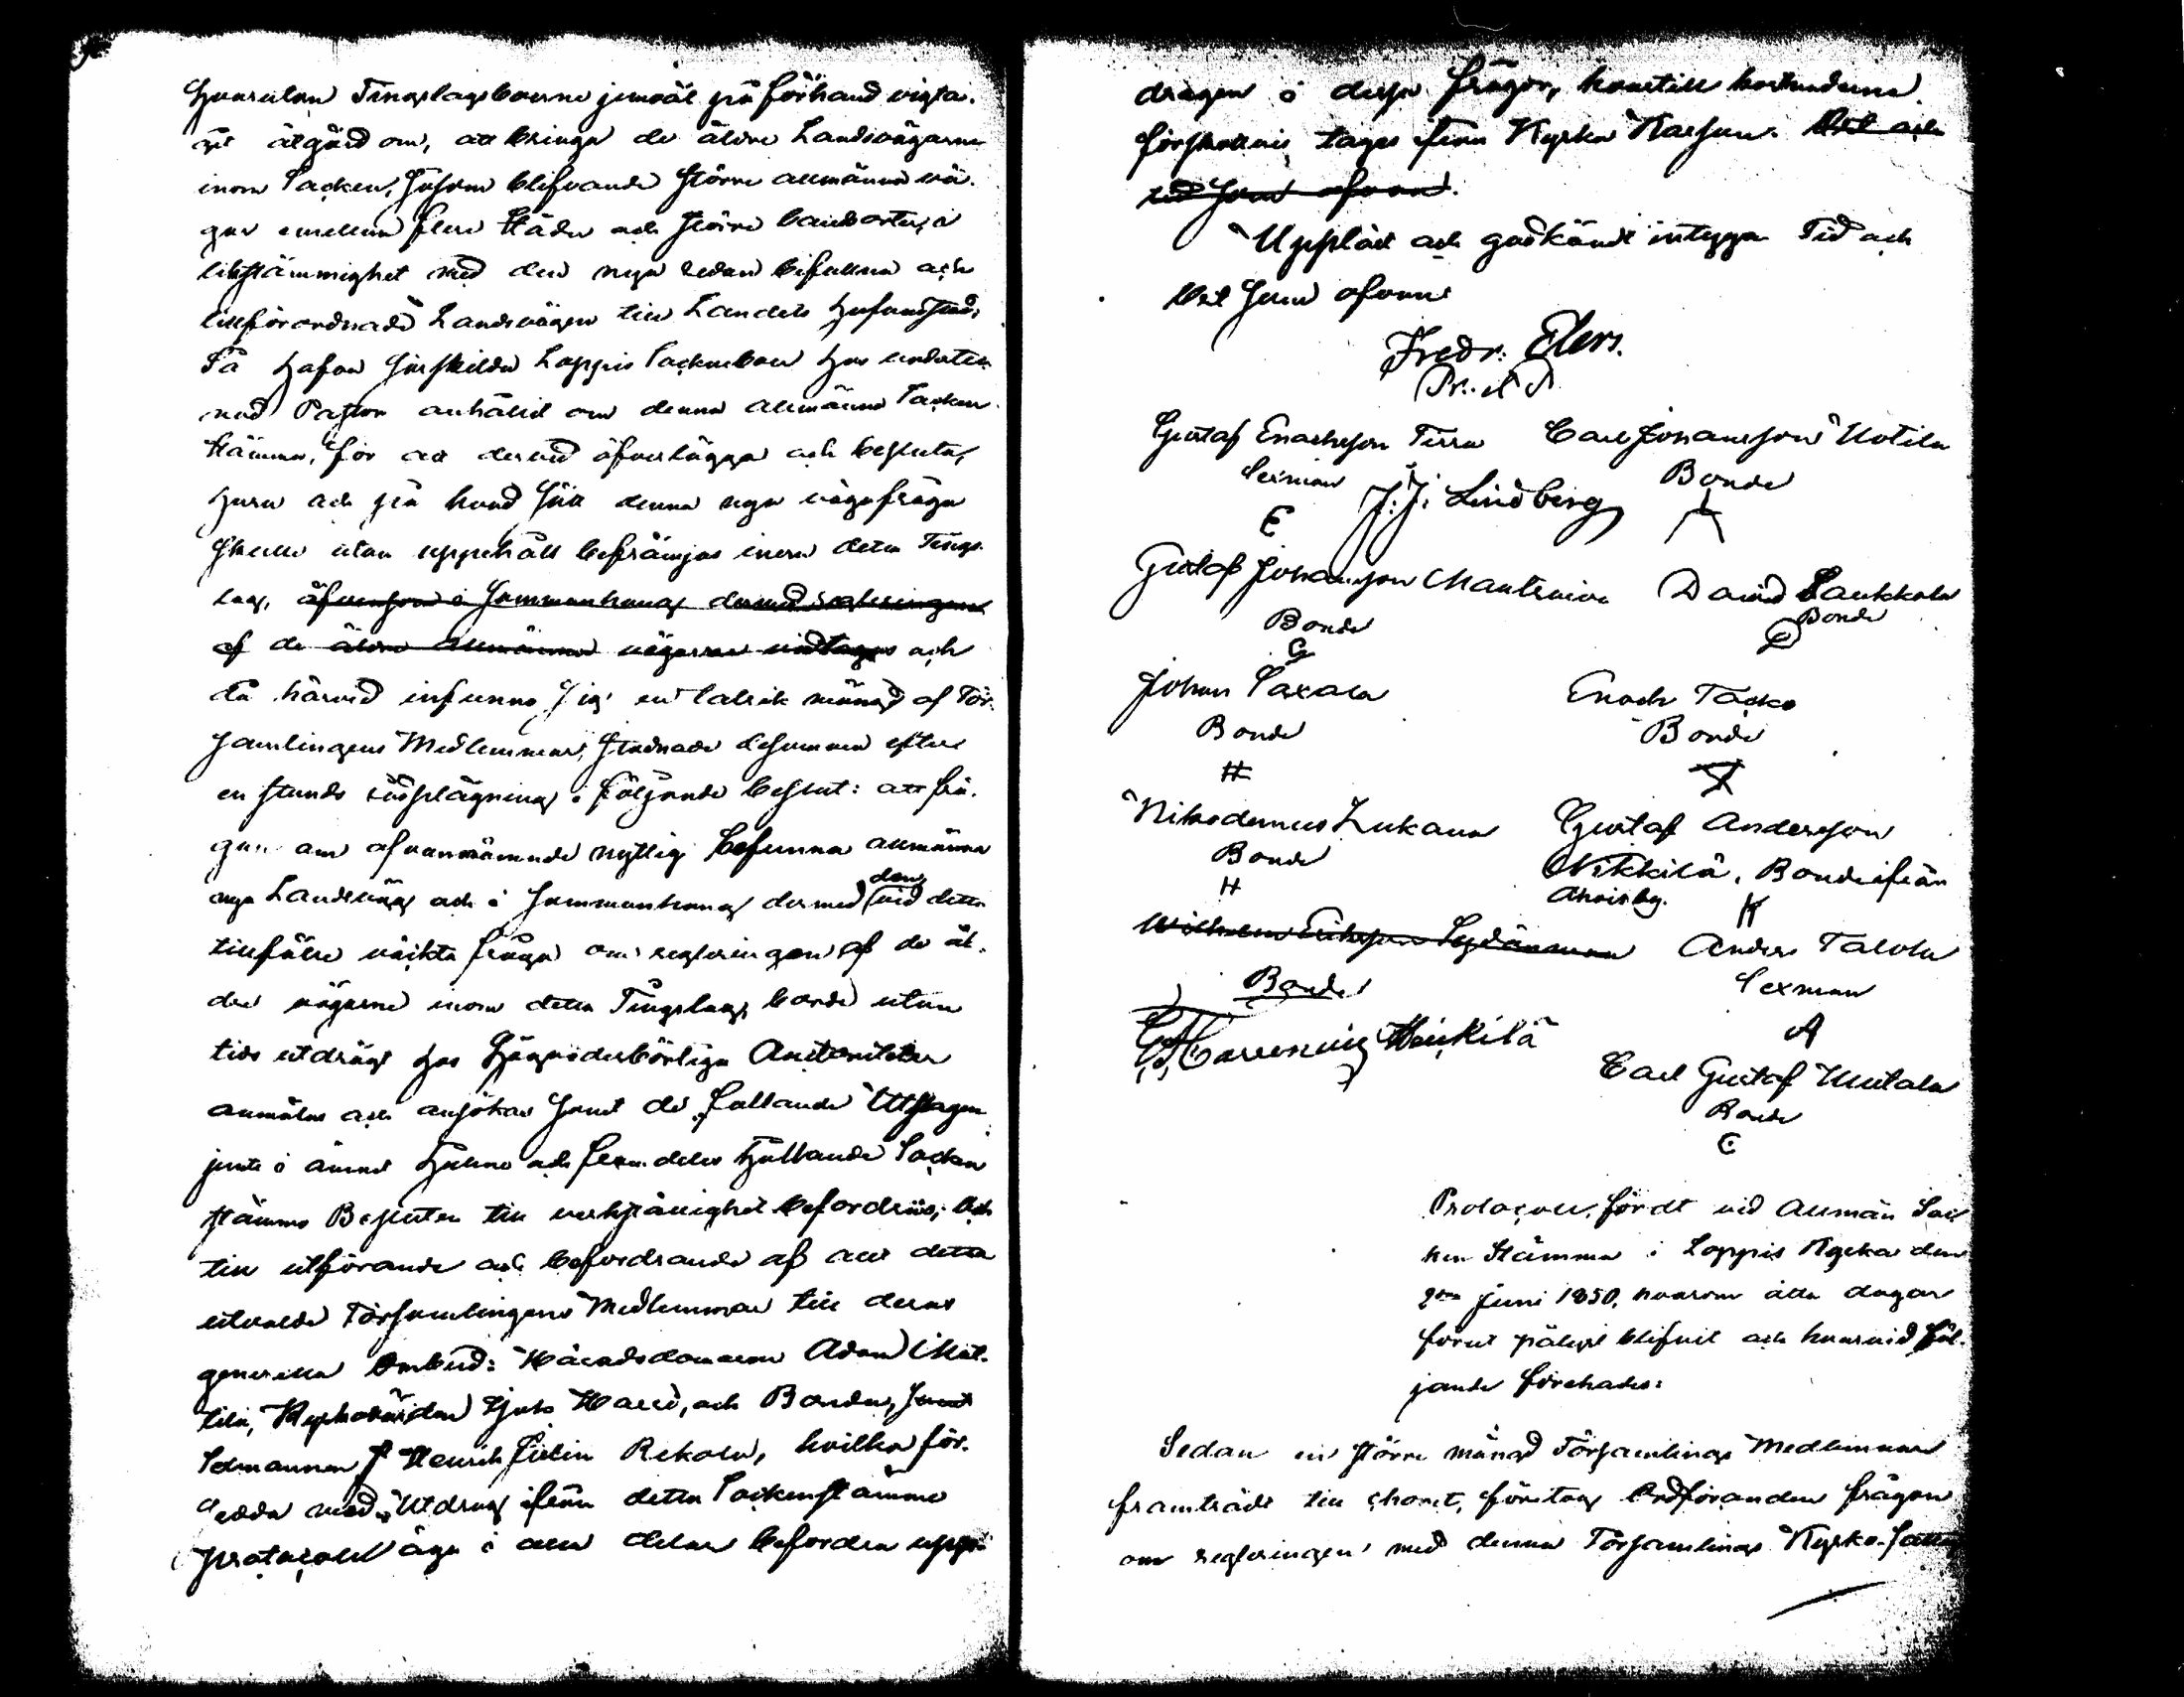 Hvarutom Tingslagsboerne jemväl på förhand vigta-
git åtgärd om, att bringa de äldre Landsvägarne
inom Socken, såsom blifvande större allmänna vä-
gar emellan flere städer och större landsorter, i
likstämmighet med den nya redan befunna och
tillförordnade Landsvägen till Landets hufvudstad,
Så hafva särskilda Loppis Sockneboer hos undertec-
nad Pastor anhållit om denna allmänna Socken
stämma, för att dervid öfverlägga och besluta,
huru och på hvad sätt denna nya vägafråga
skulle utan uppehåll befrämjas inom detta Tings-
lag, äfvensom i sammanhang dermed regleringen
af de äldre allmänna vägarne vidtagas och
då härvid infunno sig en talrik mängd af För-
samlingens Medlemmar, stadnade desamma efter
en stunds rådplägning i följande beslut: att frå-
gan om ofvannämnde nyttig befunna allmänna
nya Landsväg och i sammanhang dermed den vid detta
tillfälle väckta fråga om regleringen af de äl-
dre vägarne inom detta Tingslag, borde utan
tids utdrägt hos Högvederbörliga Auctoriteter
anmälas och ansökas samt de fallande Utslagen
jemte i ämnet hållne och framdeles hållande Socken
stämmo Besluter till verkställighet befordras; Och
till utförande och befordrande af allt detta
utvalde Församlingens Medlemmar till deras
generella Ombud: Häradsdomaren Adam Mat-
tila, Kyrkovärden Hjob Harri, och Bonden, samt
Sexmannen Henrik Rekola, hvilka för-
sedda med Utdrag ifrån detta Sockenstämmo
protocoll äga i alla delar befordra uppd-
dragen i dessa frågor, hvartill kostnaderna
förskottvis tages från Kyrko Kassan. Ort och
tid som ofvan.
Uppläst och godkändt intyga Tid och
Ort som ofvan
Fredr. Elers.
Gustaf Enochsson Tirra Carl Johansson Uotila
Sexman Bonde
J. J. Lindberg
E
Gustaf Johansson Mantruira David Saukkola
Bonde Bonde
G D
Johan Saxala Enoch Tacko
Bonde Bonde
H
Nikodemus Lukana Gustaf Andersson
Bonde Nikkilä, Bonde ifrån
H Ahoisby. K
Wilhelm Eriksson Anders Talola
Bonde Sexman
Heikilä A
Carl Gustaf Uutala
Bonde
C
Protocoll, fördt vid Allmän Soc-
ken Stämma i Loppis Kyrka den
2dra Juni 1850, hvarom åtta dagar
förut pålyst blifvit och hvarvid föl-
jande förehades:
Sedan en större mängd Församlings Medlemmar
framträdt till choret, företog Ordföranden frågan
om regleringen med denna Församlings Kyrko-